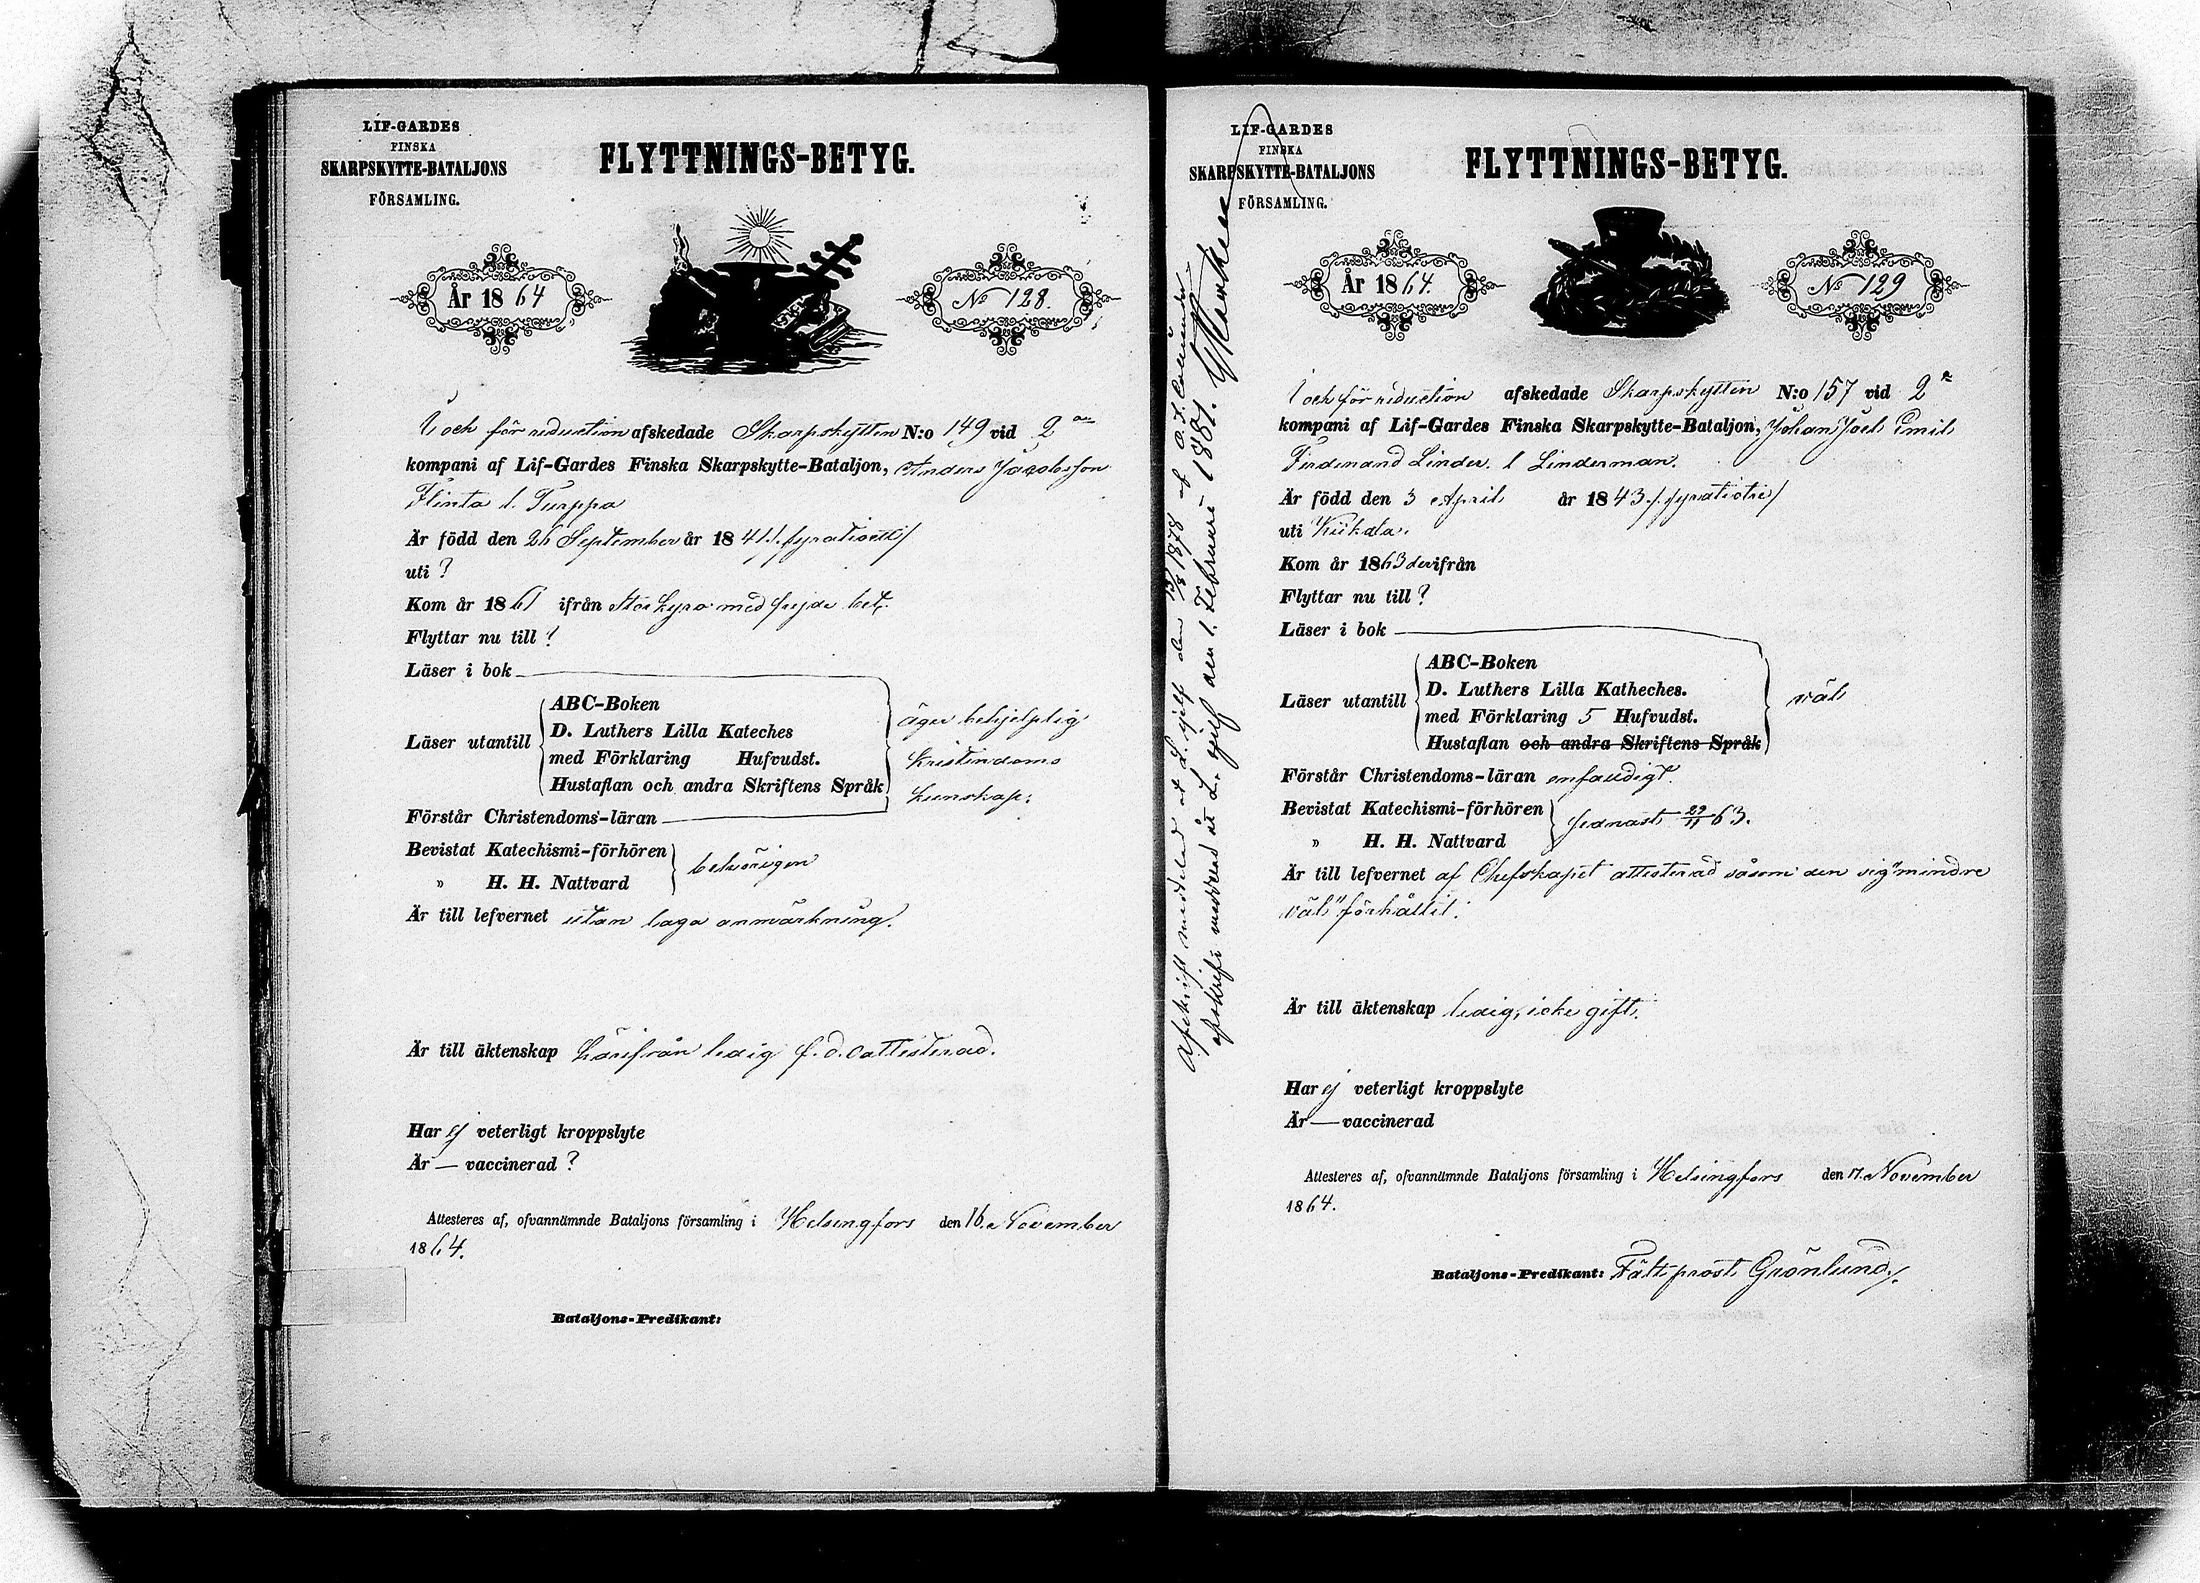 LIF-GARDES
FINSKA
SKARPSKYTTE-BATALJONS
FÖRSAMLING.
FLYTTNINGS-BETYG.
År 1864
No 128.
I och för reduction afskedade Skarpskytten N:o 149 vid 2
kompani af Lif-Gardes Finska Skarpskytte-Bataljon, Anders Jacobsson
Flinta l. Turppa
Är född den 26 September år 1841 /.fyrationett/
uti ?
Kom år 1861 ifrån Storkyro med frejde bet.
Flyttar nu till ?
Läser i bok
Läser utantill
ABC-Boken
D. Luthers Lilla Kateches
med Förklaring Hufvudst.
Hustaflan och andra Skriftens Språk
äger behjelplig
kristendoms
kunskap.
Förstår Christendoms-läran
Bevistat Katechismi-förhören
" H. H. Nattvard
behörigen
Är till lefvernet utan laga anmärkning.
Är till äktenskap härifrån ledig attesterad.
Har ej veterligt kroppslyte
Är — vaccinerad ?
Attesteres af, ofvannämnde Bataljons församling i Helsingfors den 16. November
1864.
Bataljons-Predikant:
Afskrift meddelad åt L. sjelf den 1878 af
afskrift meddelad åt L. sjelf den 1. Februari 1881.
LIF-GARDES
FINSKA
SKARPSKYTTE-BATALJONS
FÖRSAMLING.
FLYTTNINGS-BETYG.
År 1864.
No 129
I och för reduction afskedade Skarpskytten N:o 157 vid 2
kompani af Lif-Gardes Finska Skarpskytte-Bataljon, Johan Joel Emil
Ferdinand Linder. l Linderman.
Är född den 3 April år 1843 /.fyratiotre/
uti Kiikala.
Kom år 1863 derifrån
Flyttar nu till ?
Läser i bok
Läser utantill
ABC-Boken
D. Luthers Lilla Katheches.
med Förklaring 5 Hufvudst.
Hustaflan och andra Skriftens Språk
väl
Förstår Christendoms-läran enfaldigt.
Bevistat Katechismi-förhören
" H. H. Nattvard
sednast 29/11 63.
Är till lefvernet af Chefskapet attesterad såsom den sig "mindre
väl" förhållit.
Är till äktenskap ledig, icke gift.
Har ej veterligt kroppslyte
Är — vaccinerad
Attesteres af, ofvannämnde Bataljons församling i Helsingfors den 17. November
1864.
Bataljons-Predikant: Fältprost Grönlund/.